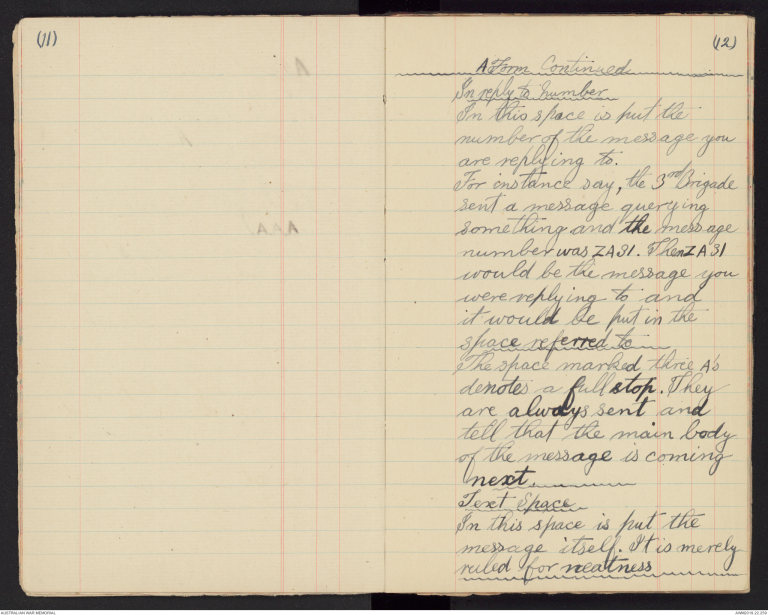 (11)
A
A A A
(12)
A Form Continued
In reply to Number
In this space is put the
number of the message you
are replying to.
For instance say, the 3rd Brigade
sent a message querying
something and the message
number was ZA31. Then ZA31
would be the message you
were replying to and
it would be put in the
space referred to
The space marked three A's
denotes a full stop. They
are always sent and
tell that the main body
of the message is coming
next.
Text Space
In this space is put the
message itself. It is merely
ruled for neatness
AUSTRALIAN WAR MEMORIAL